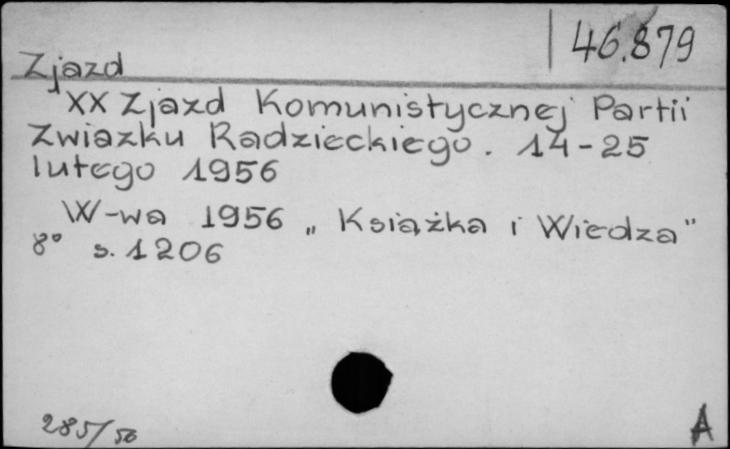 46.879
Zjazd
XX Zjazd Komunistycznej Partii
Zwiazku Radzieckiego. 14-25
lutego 1956
W-wa 1956 „Książka i Wiedza"
8° s. 1206
285/56
A